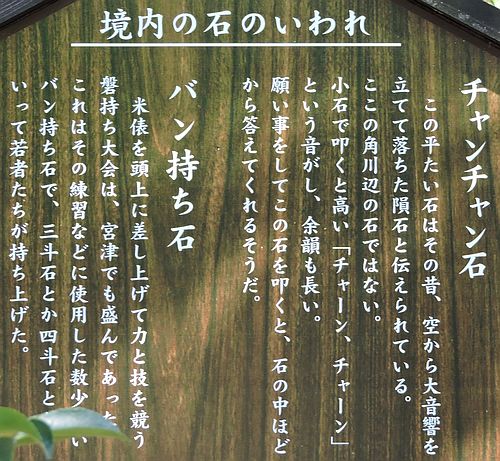 境内の石のいわれ
チャンチャン石
この平たい石はその昔、空から大音響を
立てて落ちた隕石と伝えられている。
ここの角川辺の石ではない。
小石で叩くと高い「チャーン、チャーン」
という音がし、余韻も長い。
願い事をしてこの石を叩くと、石の中ほど
から答えてくれるそうだ。
バン持ち石
米俵を頭上に差し上げて力と技を競う
磐持ち大会は、宮津でも盛んであった
これはその練習などに使用した数少い
バン持ち石で、三斗石とか四斗石と
いって若者たちが持ち上げた。